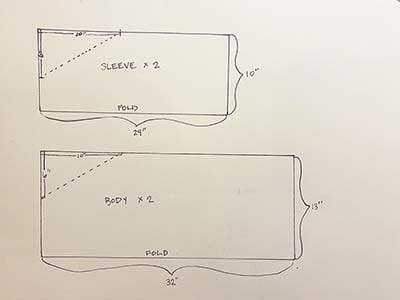 10"
SLEEVE x 2
10"
FOLD
24"
10"
6"
BODY x 2
13"
FOLD
32"